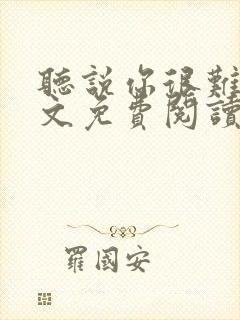 聽說你很難
文免費閱讀
羅國安